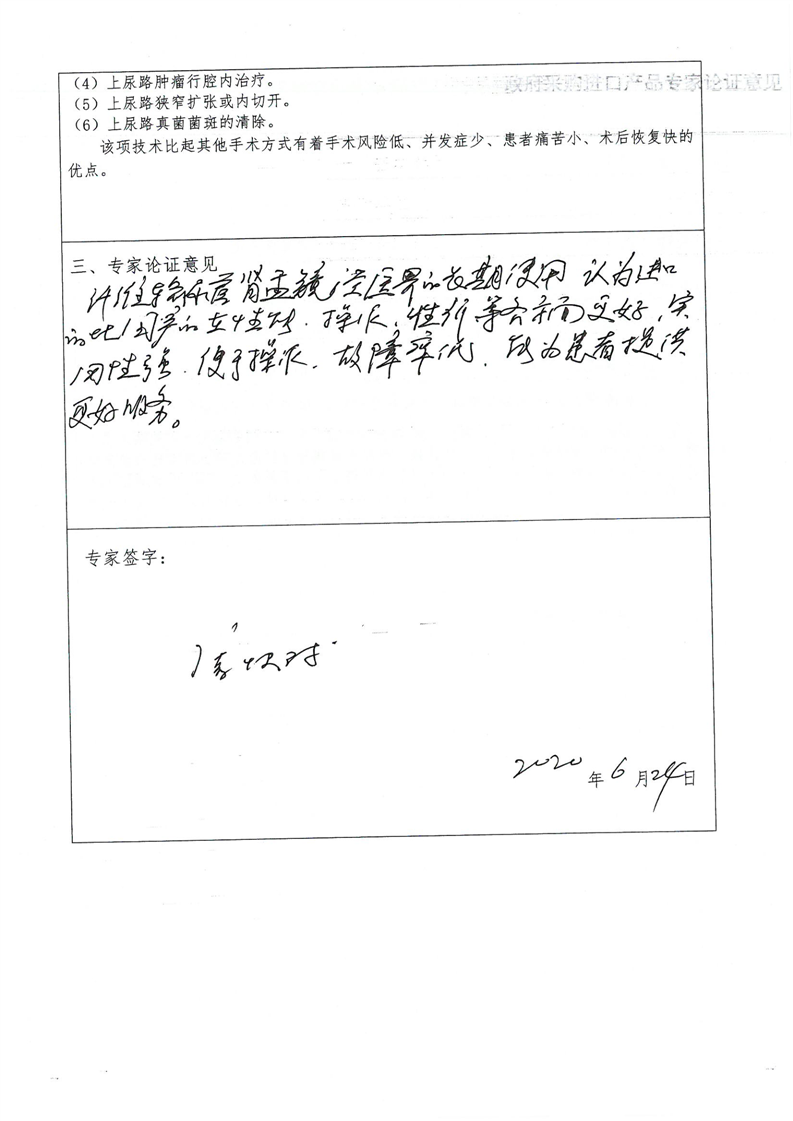 (4)上尿路肿瘤行腔内治疗。
(5)上尿路狭窄扩张或内切开。
(6)上尿路真菌菌斑的清除。
该项技术比起其他手术方式有着手术风险低、并发症少、患者痛苦小、术后恢复快的
优点。
三、专家论证意见
纤维输尿管肾盂镜,经医界的长期使用 认为进口
的比国产的在性能、操作、性价等各方面更好,实
用性强、便于操作、故障率低、能为患者提供
更好服务。
专家签字:
2020年6月24日
政府采购进口产品专家论证意见